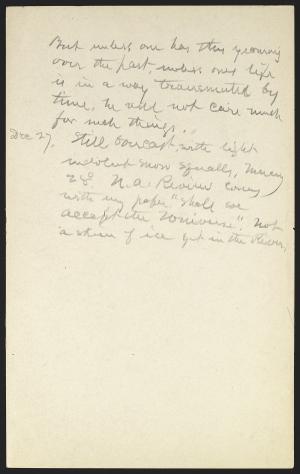 But unless one has this yearning
over the past, unless ones life
is in a way transmuted by
time, he will not care much
for such things.
Dec 27. Still overcast, with light
indolent snow squalls, Mercury
28°. N.A. Review comes
with my paper "Shall we
accept the Universe". Not
a stem of ice yet in the River.